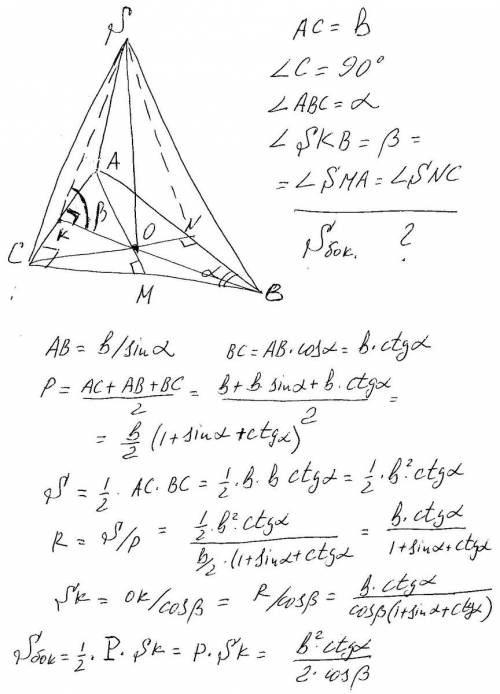 S
A
β
K
O
N
C
M
α
B
AC = b
∠C = 90°
∠ABC = α
∠SKB = β =
= ∠SMA = ∠SNC
Sбок. ?
AB = b/sinα BC = AB·cosα = b·ctgα
P = (AC + AB + BC)/2 = (b + b sinα + b·ctgα)/2 =
= b/2 (1 + sinα + ctgα)
S = 1/2 · AC·BC = 1/2·b·b ctgα = 1/2·b²·ctgα
R = S/P = (1/2·b²·ctgα)/(b/2·(1 + sinα + ctgα) = b·ctgα/(1 + sinα + ctgα)
SK = OK/cosβ = R/cosβ = b·ctgα/(cosβ(1 + sinα + ctgα)
Sбок = 1/2·P·SK = p·SK = b²·ctgα/(2·cosβ)